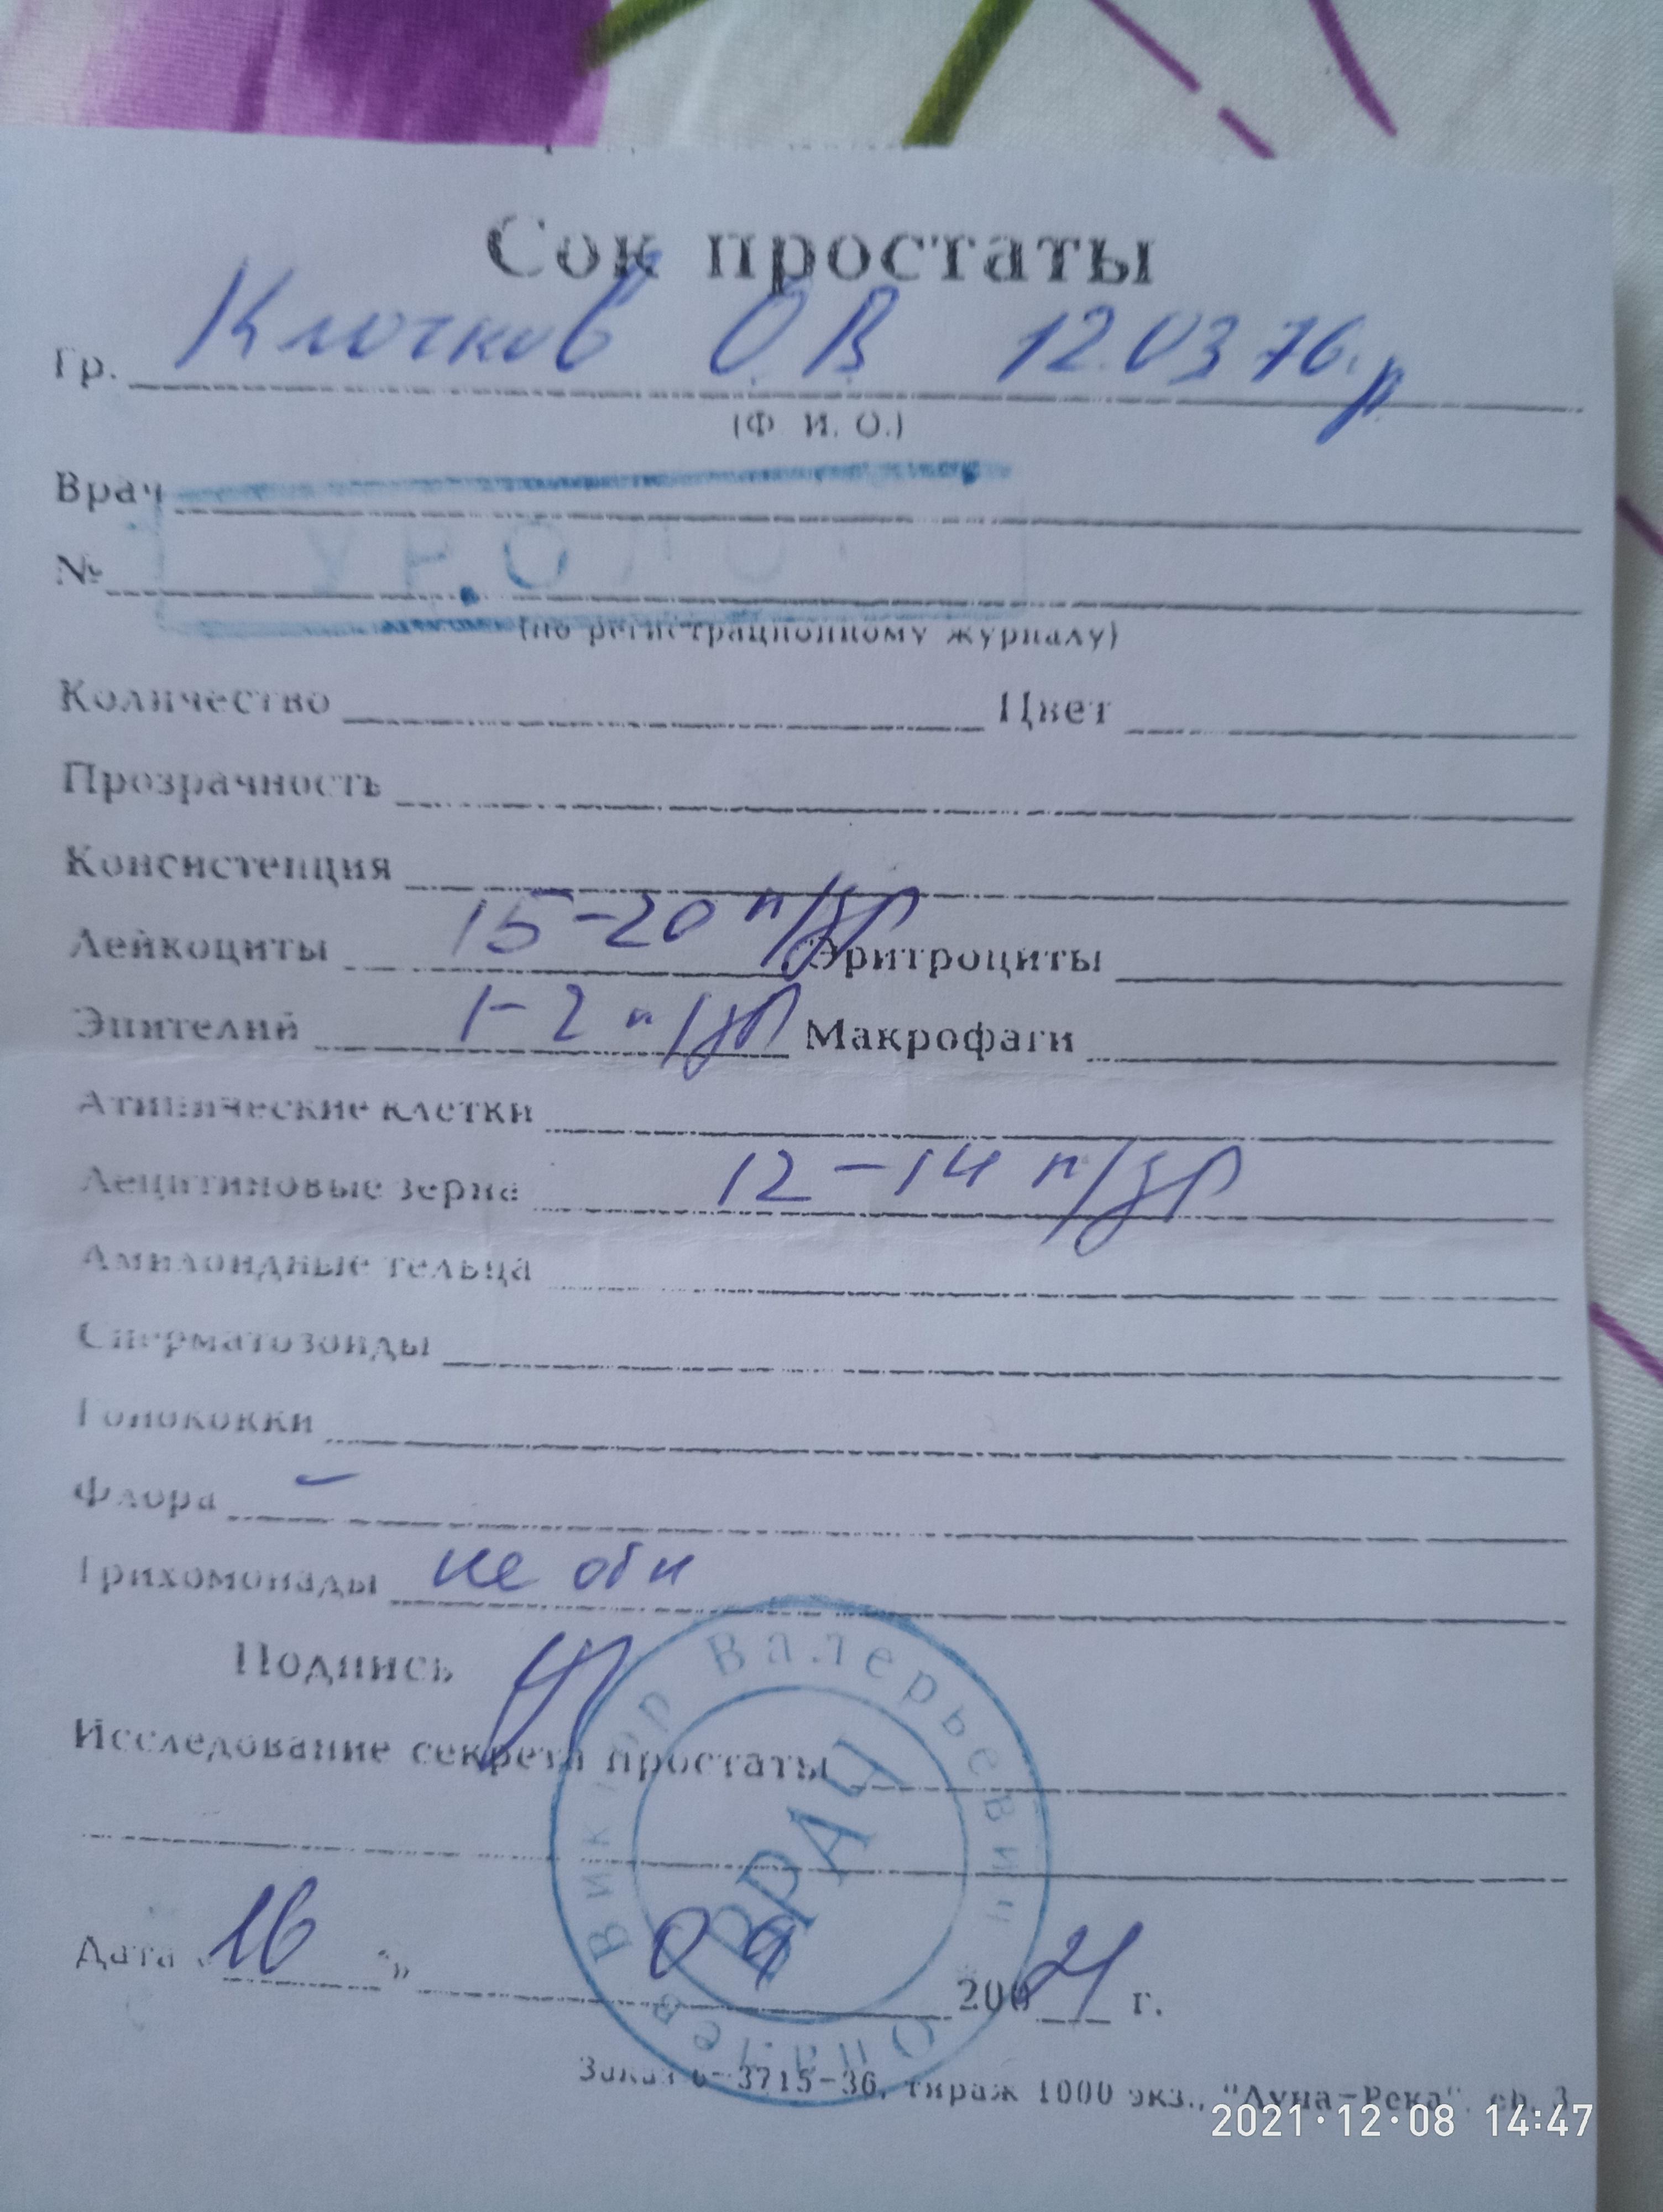 Сок простаты
Гр. Клочков О.В 12.03 76г.р
(Ф. И. О.)
Врач
УРОЛОГ
№
(по регистрационному журналу)
Количество Цвет
Прозрачность
Консистенция
Лейкоциты 15-20 п/зр Эритроциты
Эпителий 1-2 п/зр Макрофаги
Атипические клетки
Лецитиновые зерна 12-14 п/зр
Амилоидные тельца
Сперматозоиды
Гонококки
Флора -
Трихомонады не обн
Подпись
Исследование секрета простаты
Виктор Валерьевич
ВРАЧ
Дата «16» 09 200 21 г.
Заказ 6-3715-36, тираж 1000 экз., "Луна-Река". св. 3
2021·12·08 14:47